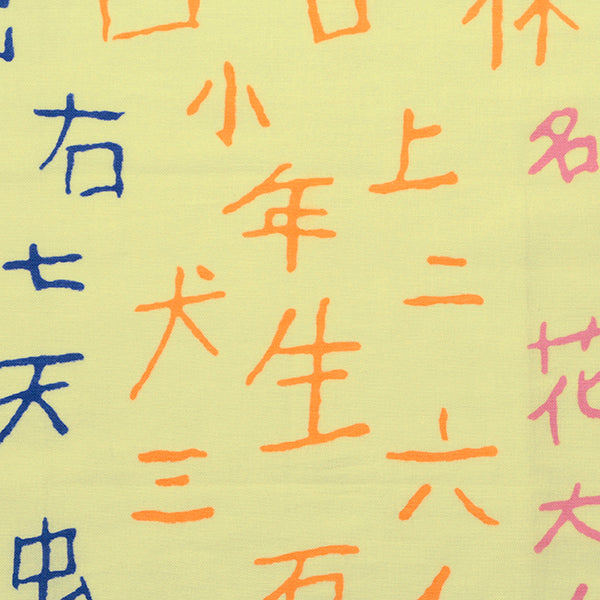 林
小
右
上
名
年
七
二
犬
生
天
花
三
六
大
虫
石